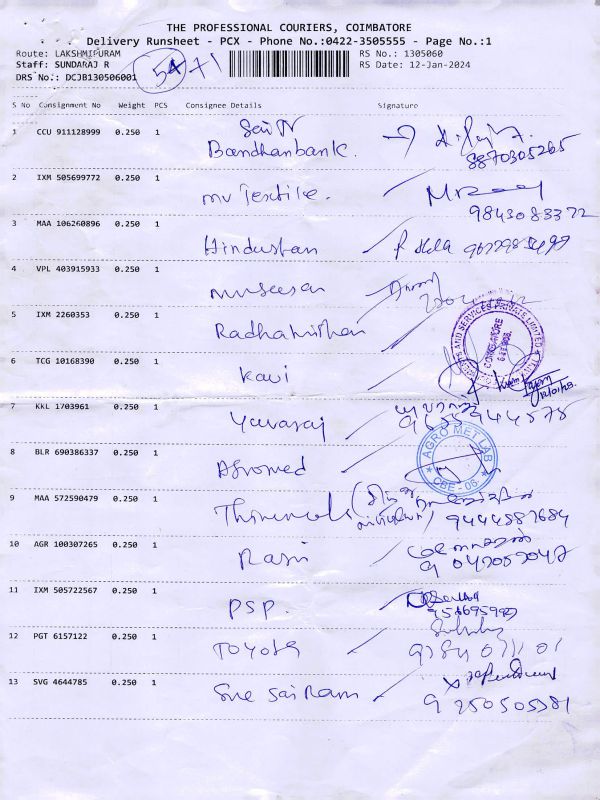 THE PROFESSIONAL COURIERS, COIMBATORE
Delivery Runsheet - PCX - Phone No.:0422-3505555 - Page No.:1
Route: LAKSHMIPURAM RS No.: 1305060
Staff: SUNDARAJ R RS Date: 12-Jan-2024
DRS No.: DCJB130506001
S No Consignment No Weight PCS Consignee Details Signature
1 CCU 911128999 0.250 1 Bandhanbank.
8870305265
2 IXM 505699772 0.250 1 mv Textile.
9843083372
3 MAA 106260896 0.250 1 Hindustan
4 VPL 403915933 0.250 1
5 IXM 2260353 0.250 1 Radhakrishan
COIMBATORE
6 TCG 10168390 0.250 1 Kavi
7 KKL 1703961 0.250 1 Yuvaraj
9655944575
8 BLR 690386337 0.250 1 Agromed
AGRO MET LAB
CBE - 06.
9 MAA 572590479 0.250 1
9444887684
10 AGR 100307265 1 0.250 1 Rasi
9042052047
11 IXM 505722567 0.250 1 PSP.
12 PGT 6157122 0.250 1 TOYOTA
13 SVG 4644785 0.250 1 Sree Sai Ram